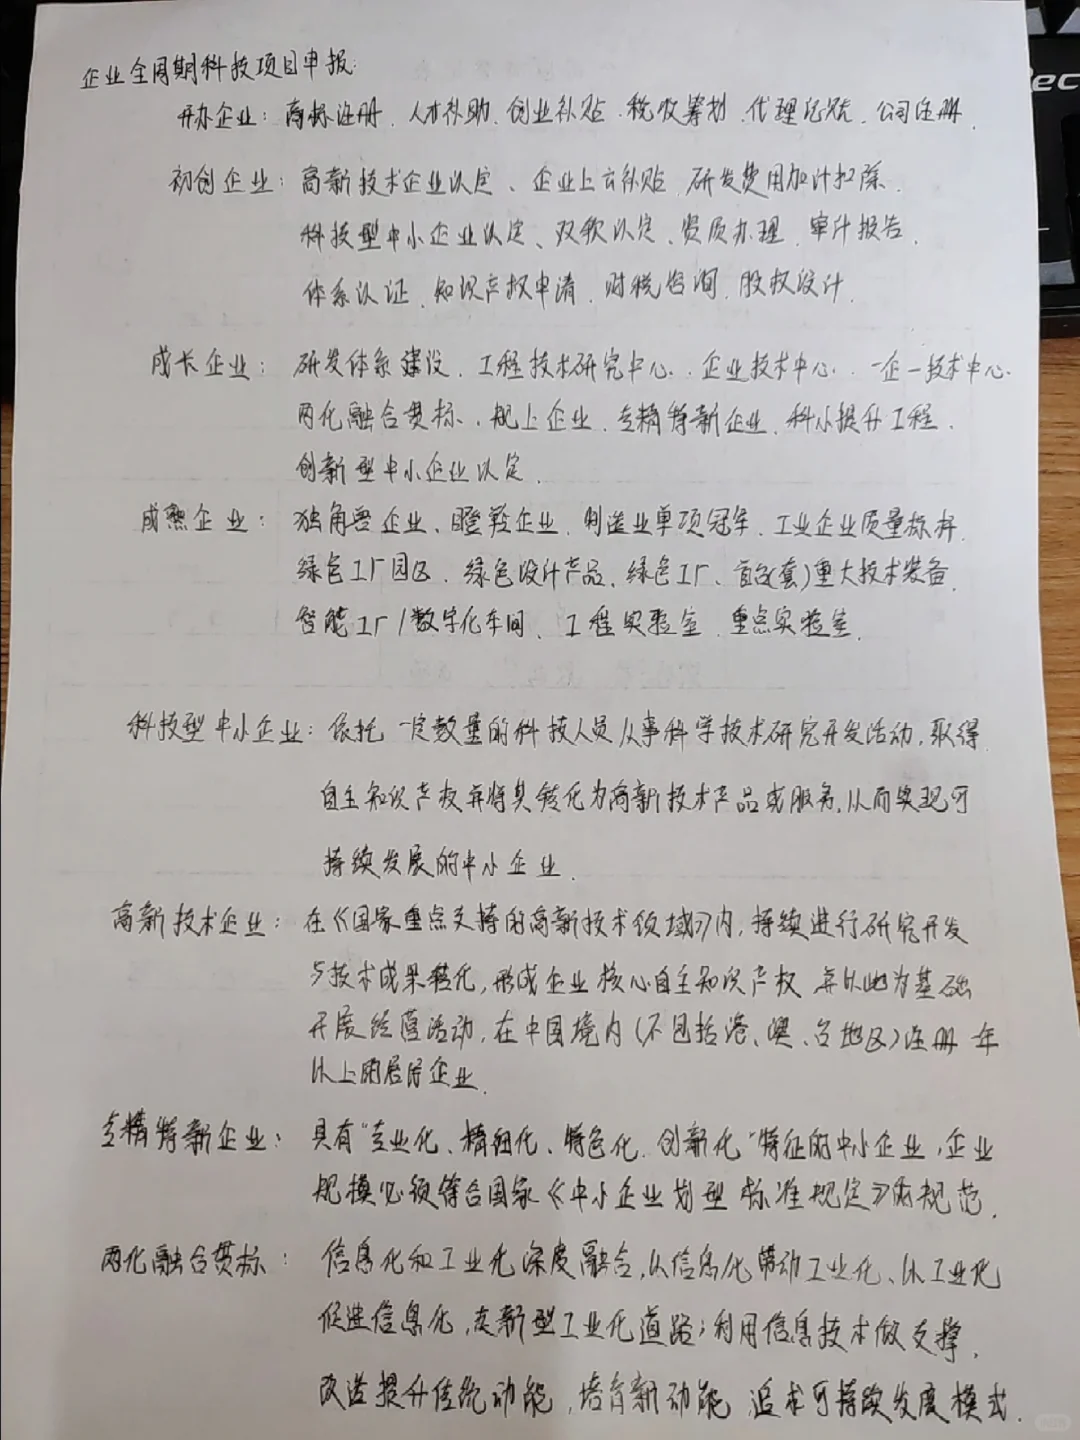 企业全周期科技项目申报:
开办企业: 商标注册、人才补助、创业补贴、税收筹划、代理记账、公司注册、
初创企业: 高新技术企业认定、企业上云补贴、研发费用加计扣除、
科技型中小企业认定、双软认定、资质办理、审计报告、
体系认证、知识产权申请、财税咨询、股权设计、
成长企业: 研发体系建设、工程技术研究中心、企业技术中心、一企一技术中心、
两化融合贯标、规上企业、专精特新企业、科小提升工程、
创新型中小企业认定、
成熟企业: 独角兽企业、瞪羚企业、制造业单项冠军、工业企业质量标杆、
绿色工厂园区、绿色设计产品、绿色工厂、首台(套)重大技术装备、
智能工厂/数字化车间、工程实验室、重点实验室、
科技型中小企业: 依托一定数量的科技人员从事科学技术研究开发活动,取得
自主知识产权并将其转化为高新技术产品或服务,从而实现可
持续发展的中小企业.
高新技术企业: 在《国家重点支持的高新技术领域》内,持续进行研究开发
与技术成果转化,形成企业核心自主知识产权,并以此为基础
开展经营活动,在中国境内(不包括港、澳、台地区)注册一年
以上的居民企业.
专精特新企业: 具有“专业化、精细化、特色化、创新化”特征的中小企业,企业
规模必须符合国家《中小企业划型标准规定》的规范.
两化融合贯标: 信息化和工业化深度融合,以信息化带动工业化、以工业化
促进信息化,走新型工业化道路;利用信息技术做支撑,
改造提升传统动能,培育新动能,追求可持续发展模式.
Rec